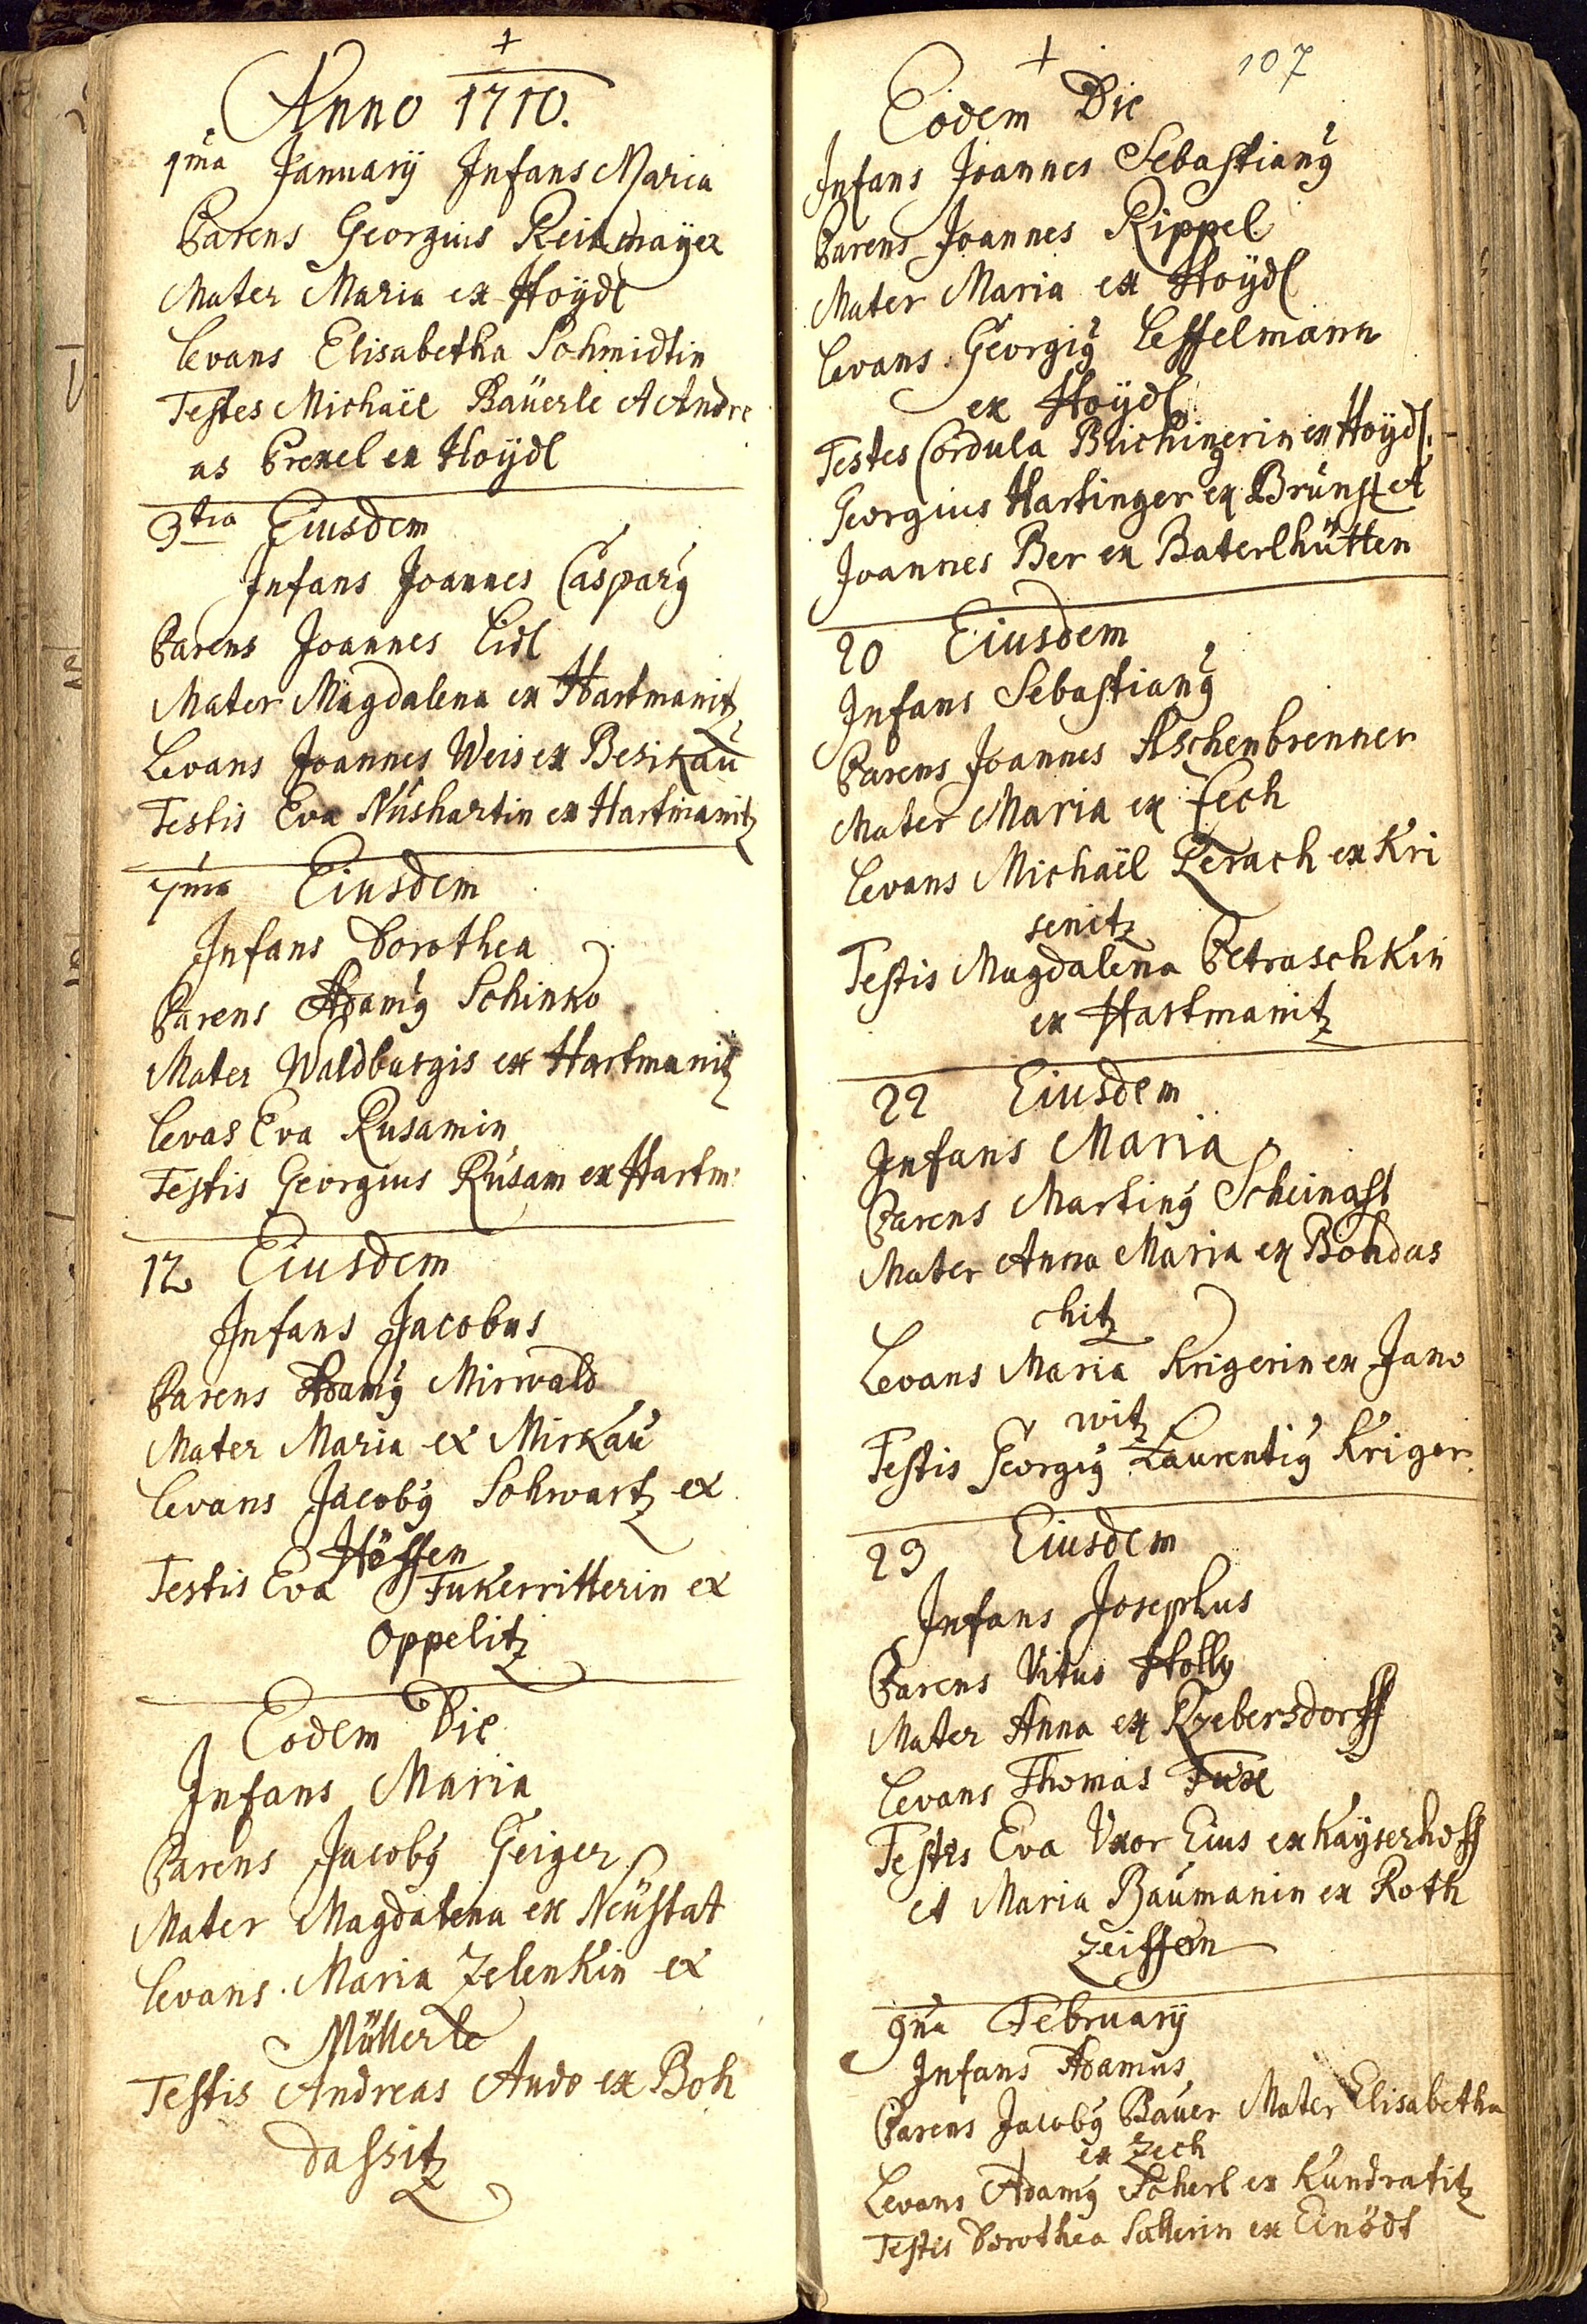 +
Anno 1710.
1ma Januarÿ Infans Maria
Parens Georgius Reitmaÿer
Mater Maria ex Hoÿdl
Levans Elisabetha Schmidtin
Testes Michaël Baüerle et Andre
as Prexel ex Hoÿdl
3tia Eiusdem
Infans Joannes Casparꝰ
Parens Joannes Lidl
Mater Magdalena ex Hartmanitz
Levans Joannes Weis ex Besikaŭ
Testis Eva Nŭshartin ex Hartmanitz
7ma Eiusdem
Infans Dorothea
Parens Adamꝰ Schinko
Mater Waldburgis ex Hartmanitz
Levas Eva Rusamin
Testis Georgius Rŭsam ex Hartm:
12 Eiusdem
Infans Jacobus
Parens Adamꝰ Mirwald
Mater Maria ex Mirkaŭ
Levans Jacobꝰ Schwartz ex
Höffen
Testis Eva Fukerritterin ex
Oppelitz
Eodem Die
Infans Maria
Parens Jacobꝰ Geiger
Mater Magdalena ex Neŭstat
Levans Maria Zelenkin ex
Müllerle
Testis Andreas Ando ex Boh
dassitz
+
107
Eodem Die
Infans Joannes Sebastianꝰ
Parens Joannes Rippel
Mater Maria ex Hoÿdl
Levans Georgiꝰ Leffelmann
ex Hoÿdl
Testes Cordula Bŭchingerin ex Hoÿdl.
Georgius Hartinger ex Brŭnst et
Joannes Ber ex Baterlhŭtten
20 Eiusdem
Infans Sebastianꝰ
Parens Joannes Aschenbrenner
Mater Maria ex Zech
Levans Michaël Zerach ex Kri
senitz
Testis Magdalena Petraschkin
ex Hartmanitz
22 Eiusdem
Infans Maria
Parens Martinꝰ Scheinost
Mater Anna Maria ex Bohdas
chitz
Levans Maria Krigerin ex Jano
witz
Testis Georgiꝰ Laurentiꝰ Kriger
23 Eiusdem
Infans Josephus
Parens Vitus Holly
Mater Anna ex Kzebersdorff
Levans Thomas Fux
Testes Eva Uxor Eius ex Kaÿserhoff
et Maria Baŭmanin ex Roth
zeiffen
9na Februarÿ
Infans Adamus
Parens Jacobꝰ Baŭer Mater Elisabetha
ex Zech
Levans Adamꝰ Scherl ex Kŭndratitz
Testis Dorothea Sattlerin ex Einödt